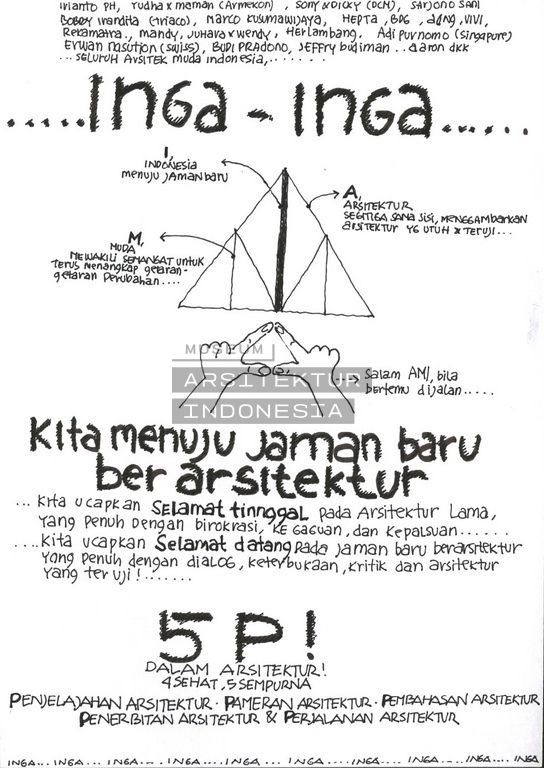 Irianto PH, Yudha x maman (Armekon) , Sony x Dicky (DCM), Sarjono Sani
Bobby Irandita (Triaco), Marco Kusumawijaya, HEPTA , BDG , dang, VIVI,
Rekamatra.., mandy, Juhara x wendy, Herlambang, Adi Purnomo (Singapure)
Erwan Nasution (Swiss), BUDI PRADONO, JEFFry Budiman .. daron dkk
... SELURUH ARSITEK muda Indonesia, . . . . . . .
.....INGa - INGa......
I,
INDONESIA
menuju jaman baru
A,
ARSITEKTUR
SEGITIGA SAMA SISI, MENGGAMBARKAN
ARSITEKTUR YG UTUH x TERUJI...
M,
MUDA
MEWAKILI SEMANGAT UNTUK
TERUS MENANGKAP GETARAN-
GETARAN PERUBAHAN....
MUSEUM
ARSITEKTUR
INDONESIA
Salam AMI, bila
bertemu dijalan.....
Kita menuju jaman baru
ber arsitektur
... Kita ucapkan Selamat tinnggal pada Arsitektur Lama,
yang Penuh Dengan birokrasi, KEGAGUAN, dan Kepalsuan......
....Kita ucapkan Selamat datang pada jaman baru berarsitektur
yang penuh dengan dialog, keterbukaan, kritik dan arsitektur
yang teruji!.......
5 P!
DALAM ARSITEKTUR!
4 SEHAT, 5 SEMPURNA
PENJELAJAHAN ARSITEKTUR · PAMERAN ARSITEKTUR · PEMBAHASAN ARSITEKTUR
PENERBITAN ARSITEKTUR & PERJALANAN ARSITEKTUR
INGA ... INGA ... INGA .... INGA ..... INGA .... INGA ... INGA .... INGA .... INGA .... INGA